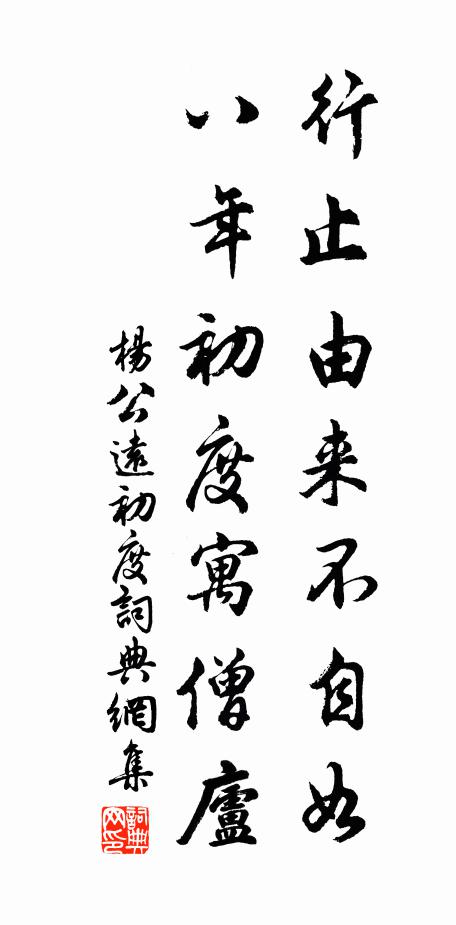 行止由来不自如
八年初度寓僧廬
楊公遠初度詞典網集
詞典网印